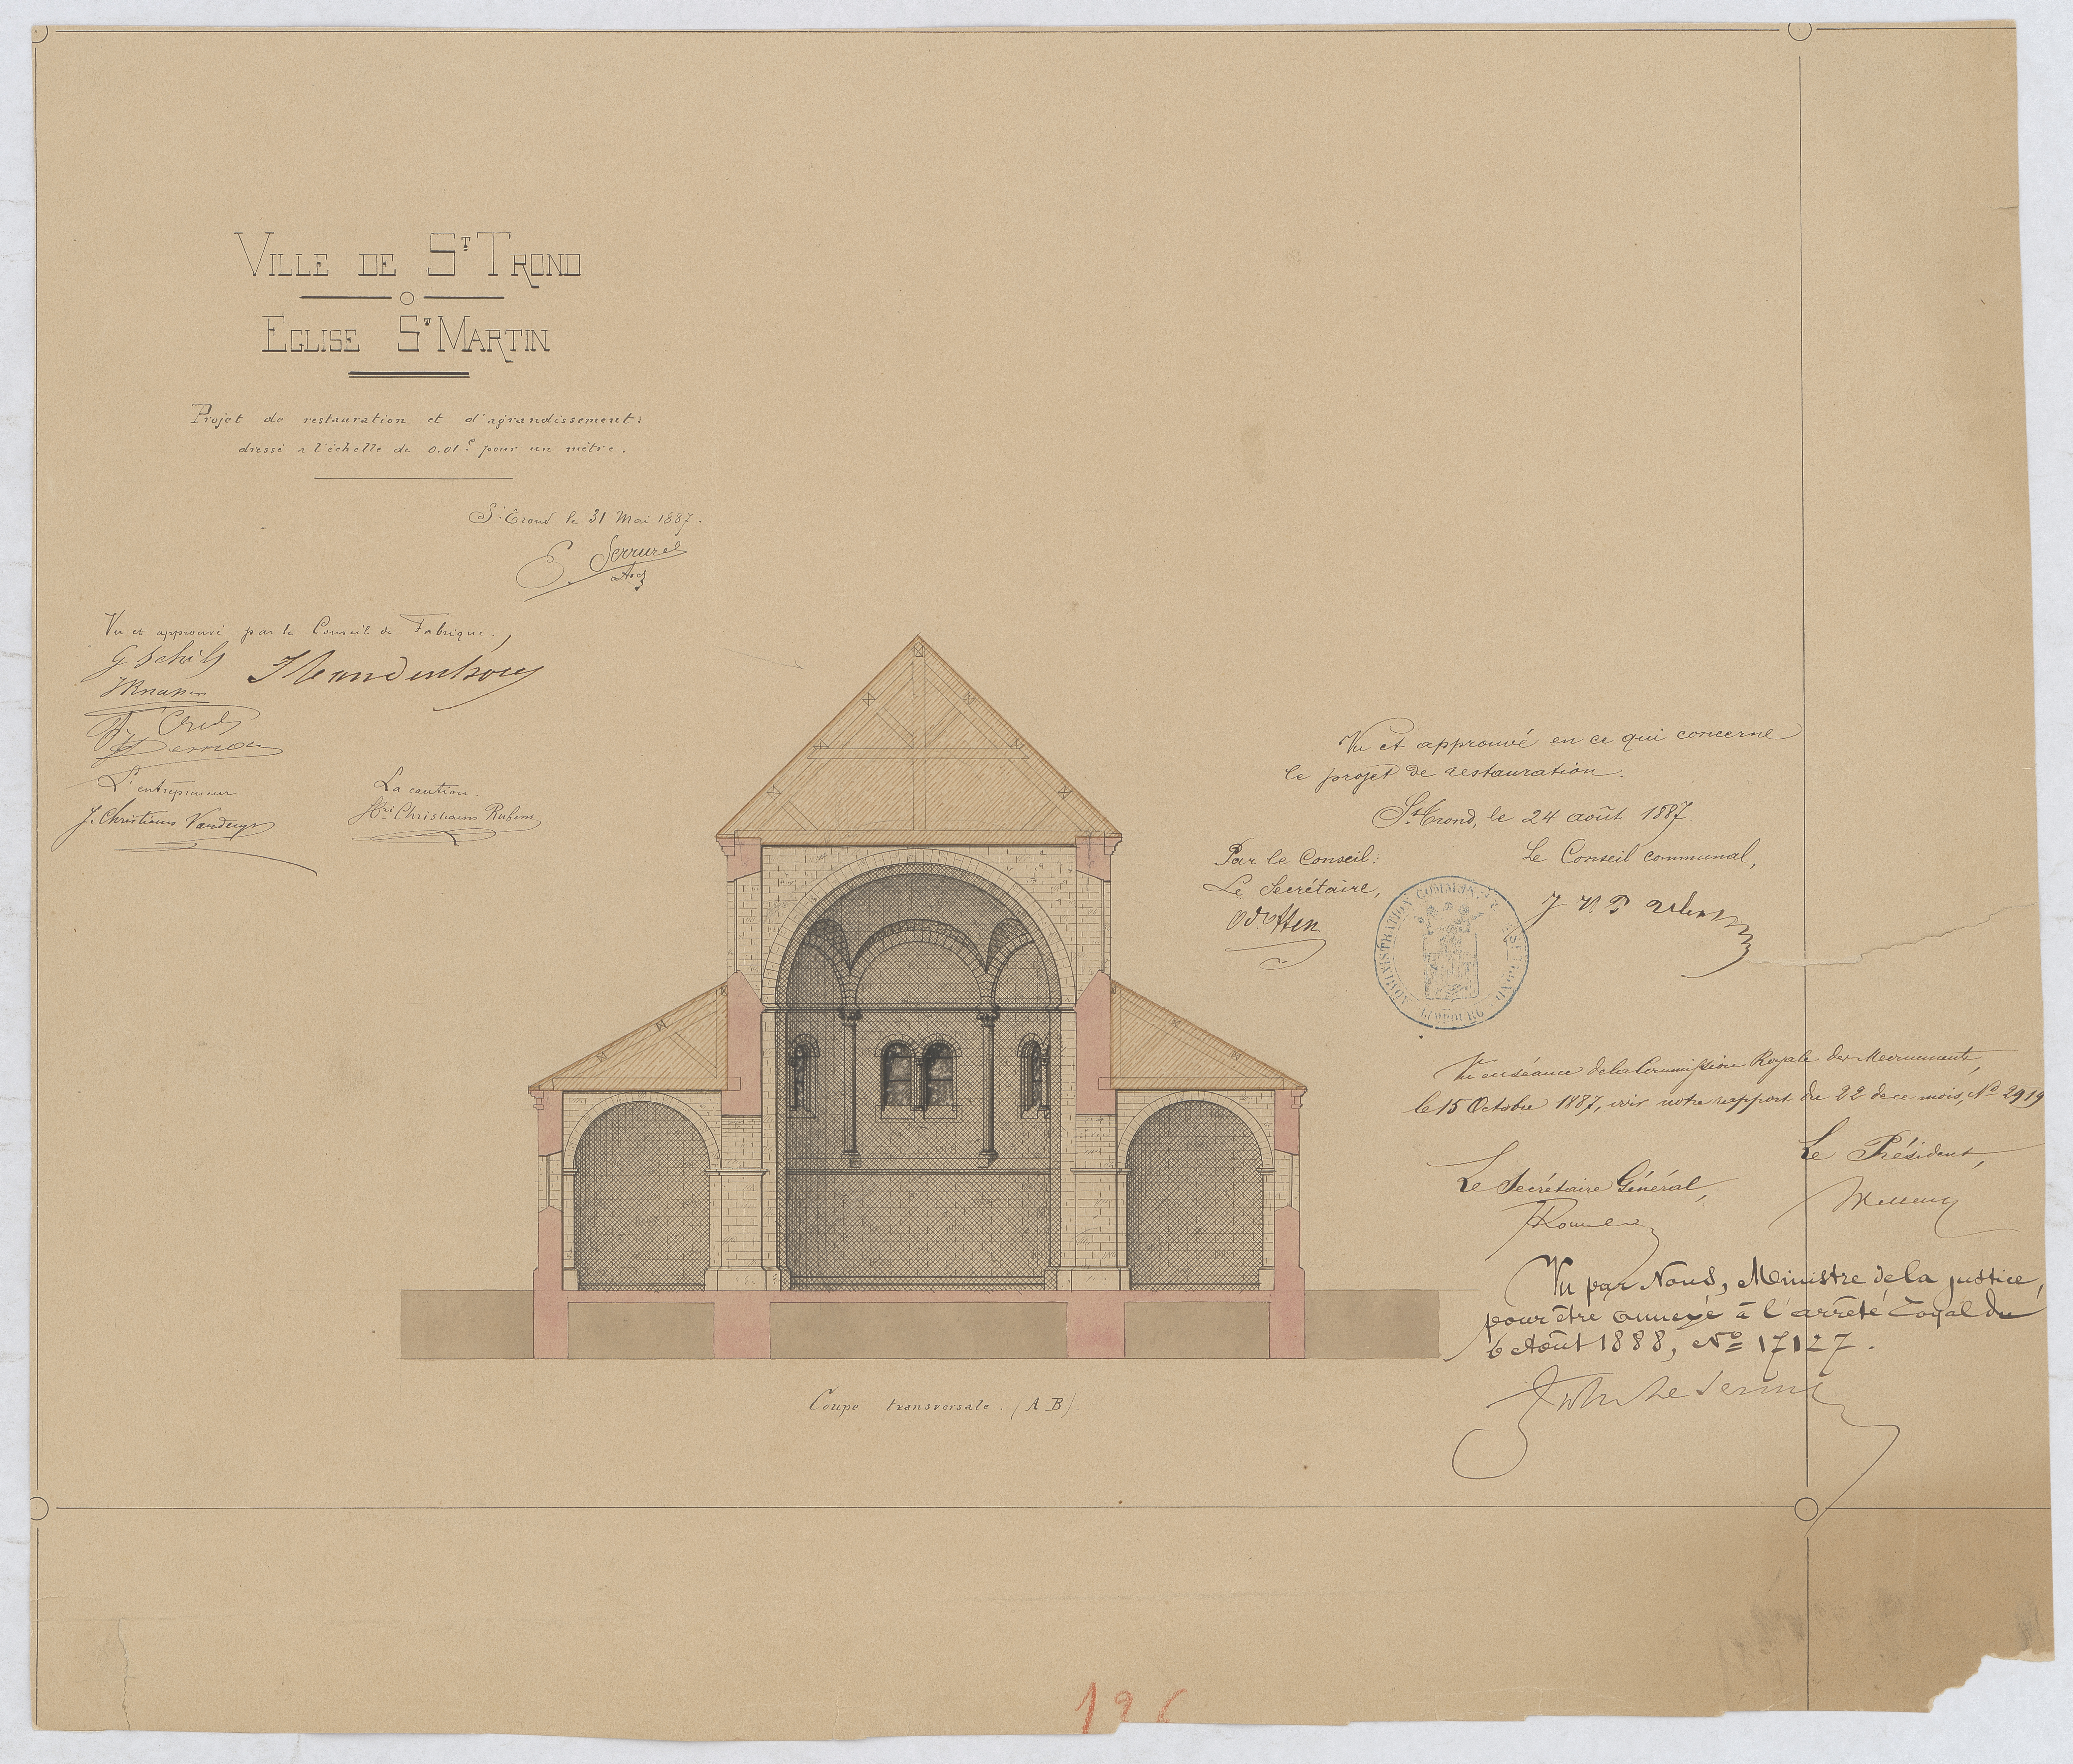 VILLE DE ST TROND
EGLISE ST MARTIN
Projet de restauration et d'agrandissement:
dressé a l'échelle de 0.01c pour un mètre.
St Trond le 31 Mai 1887.
E. Serrure
Arch
Vu et approuvé par le Conseil de Fabrique.
L'entrepreneur
La caution
J. Christiaens
Christiaens Rubens
Vu et approuvé en ce qui concerne
le projet de restauration.
St Trond, le 24 août 1887.
Par le Conseil:
Le Conseil communal,
Le Secrétaire,
ADMINISTRATION COMMUNALE
LIMBOURG
Vu en séance de la Commission Royale des Monuments,
le 15 Octobre 1887, voir notre rapport du 22 de ce mois, No 2919
Le Président,
Le Secrétaire Général,
Vu par Nous, Ministre de la justice,
pour être annexé à l'arrêté royal du
6 Août 1888, No 17127.
Coupe transversale. (A B).